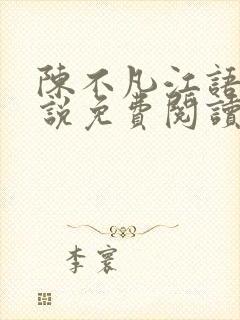 陳不凡江語
說免費閱讀
李寰